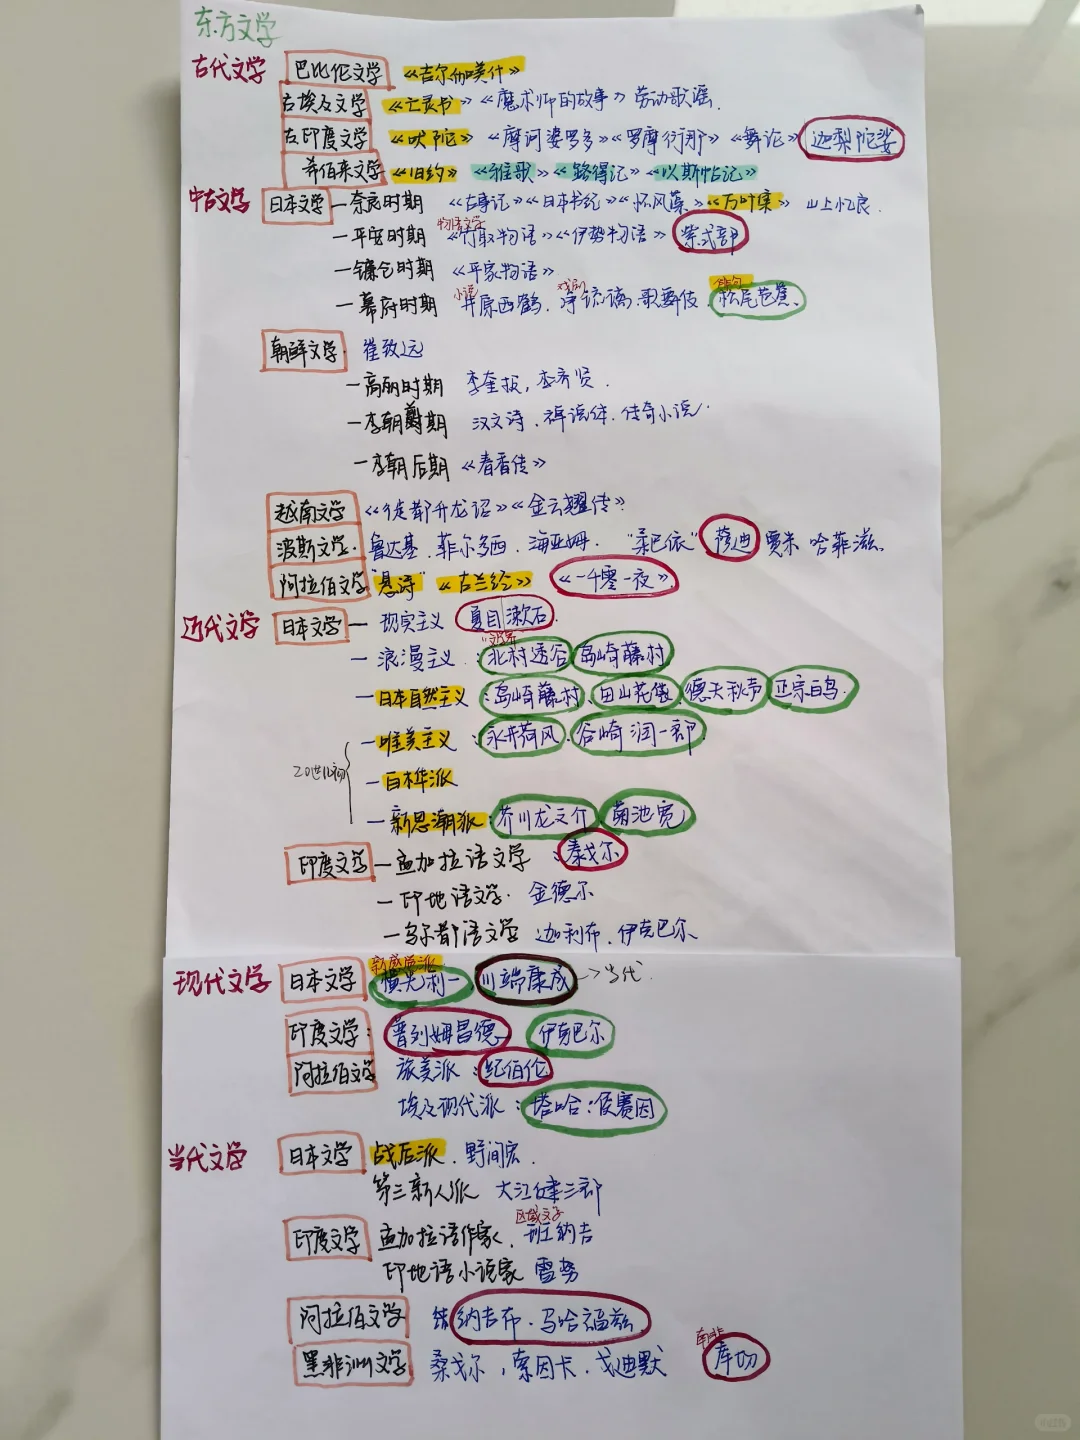 东方文学
古代文学 巴比伦文学 《吉尔伽美什》
古埃及文学 《亡灵书》《魔术师的故事》劳动歌谣.
古印度文学 《吠陀》《摩诃婆罗多》《罗摩衍那》《舞论》 迦梨陀娑
希伯来文学 《旧约》《雅歌》《路得记》《以斯帖记》
中古文学 日本文学 — 奈良时期 《古事记》《日本书纪》《怀风藻》《万叶集》 山上忆良.
物语文学
— 平安时期 《竹取物语》《伊势物语》 紫式部
— 镰仓时期 《平家物语》
小说 戏剧 俳句
— 幕府时期 井原西鹤. 净琉璃.歌舞伎. 松尾芭蕉.
朝鲜文学. 崔致远
— 高丽时期 李奎报, 李齐贤.
— 李朝前期 汉文诗.稗说体.传奇小说.
— 李朝后期 《春香传》
越南文学 《徒都升龙诏》《金云翘传》
波斯文学. 鲁达基.菲尔多西.海亚姆. “柔巴依” 萨迪 贾米 哈菲滋.
阿拉伯文学 “悬诗” 《古兰经》 《一千零一夜》
近代文学 日本文学 — 现实主义 夏目漱石.
— 浪漫主义: 北村透谷 岛崎藤村
— 日本自然主义: 岛崎藤村、田山花袋、德田秋声 正宗白鸟.
— 唯美主义: 永井荷风. 谷崎润一郎.
20世纪初
— 白桦派
— 新思潮派: 芥川龙之介 菊池宽
印度文学 — 孟加拉语文学: 泰戈尔
— 印地语文学. 金德尔
— 乌尔都语文学 迦利布.伊克巴尔
新感觉派
现代文学 日本文学 横光利一. 川端康成 → 当代.
印度文学: 普列姆昌德. 伊克巴尔
阿拉伯文学 旅美派: 纪伯伦
埃及现代派: 塔哈:侯赛因
当代文学 日本文学 战后派.野间宏.
第三新人派 大江健三郎
区域文学
印度文学 孟加拉语作家. 班纳吉
印地语小说家 雷努
阿拉伯文学 纳吉布.马哈福兹
南非
黑非洲文学 桑戈尔,索因卡.戈迪默 库切